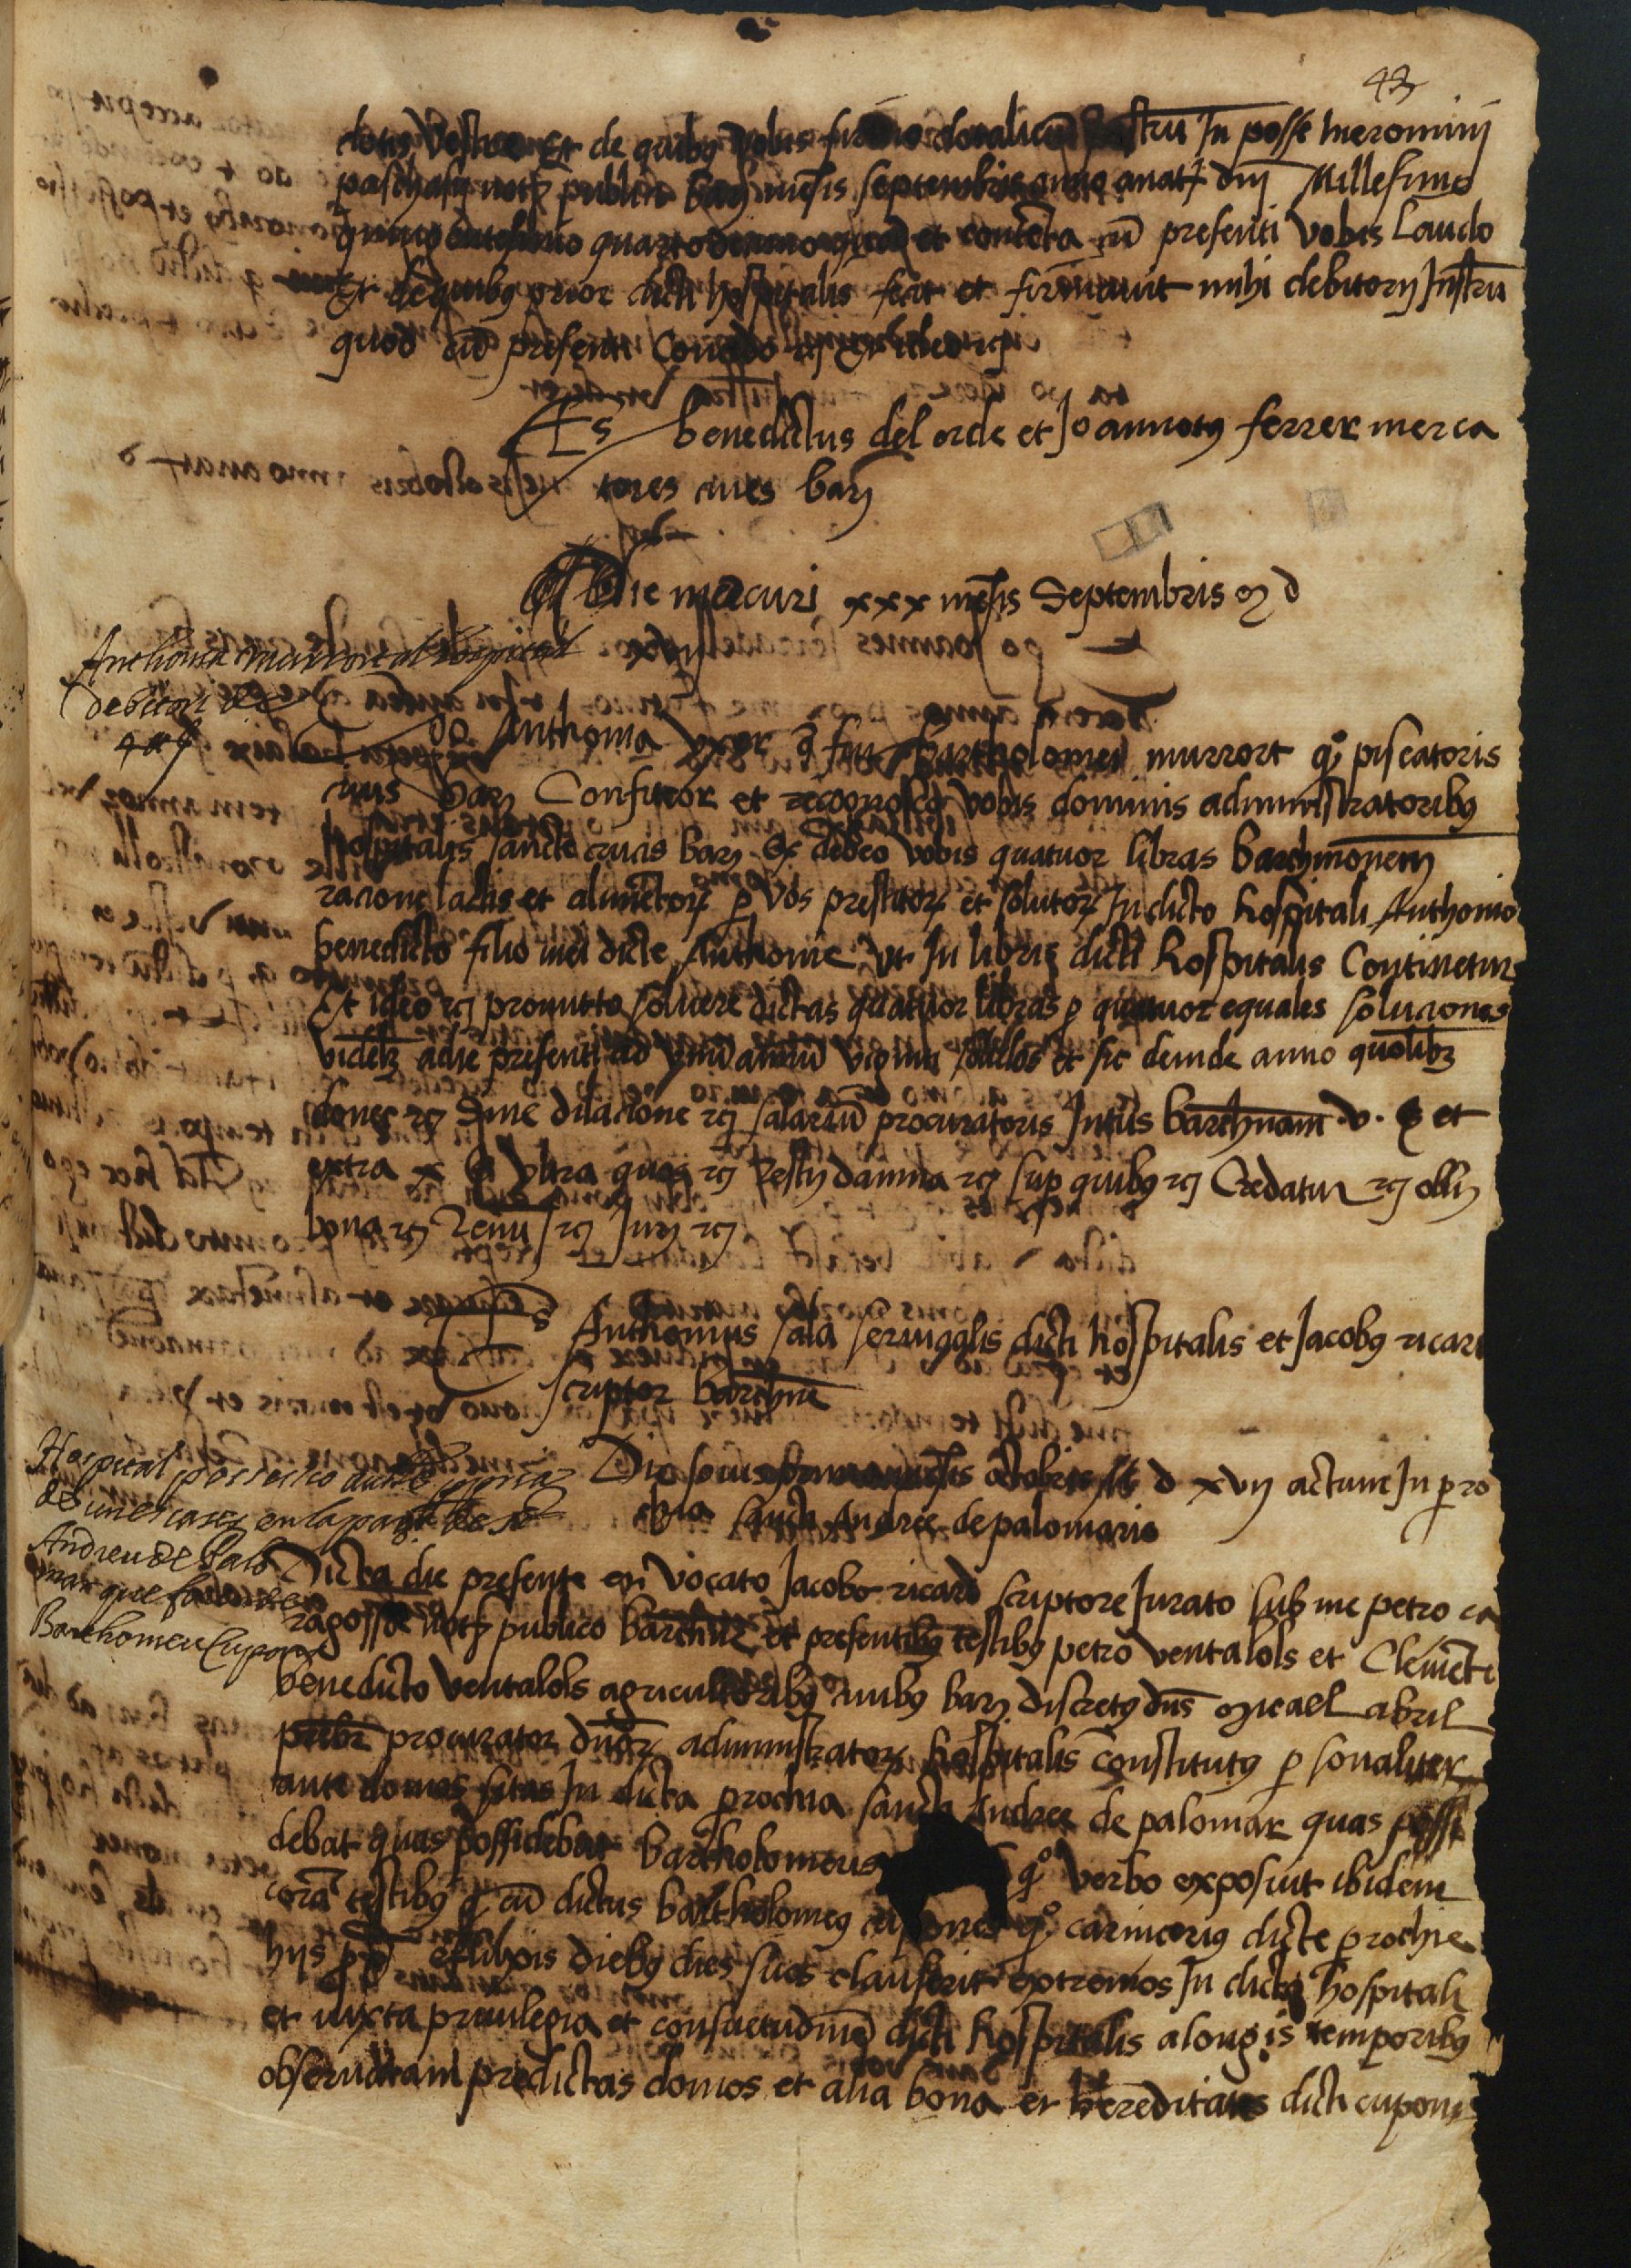 43
dotis vestre Et de quibus vobis dotalicum In posse hieronimi
paschasij nots publici barñ mēsis septembris anno anat dnj Millesimo
quingentesimo quartodecimo et contēta cū presenti vobis Laudo
Et de quibus prior dicti hospitalis fecit et firmavit mihi debitorij Instru
quod cū presenti Concedo rcj Et ideo rcj
Ts benedictus del orde et Joannotus ferrer merca
tores cives barñ
Die mercuri xxx mēsis Septembris M d
xvij
Anthonia murrort al hospital
debitori de
4 ll
Ego Anthonia Uxor q̄ fui bartholomei murrort q° piscatoris
civis barñ Confiteor et recognosco vobis dominis administratoribus
hospitalis sancte crucis barñ debeo vobis quatuor libras barchinonen
racione lactis et alimētor p vos prestitor et solutor In dicto hospitali Anthonio
benedicto filio mei dicte Anthonie Ut In libris dicti hospitalis Continetur
Et ideo rcj promitto solvere dictas quatuor libras p quatuor equales soluciones
videlz a die presenti ad unū annū viginti solidos et sic deinde anno quolibz
donec rcj Sine dilacione rcj salariū procuratoris Intus barchnam v. ss et
extra x ss Ultra quas rcj Restij damna rcj sup quibus rcj Credatur rcj oblij
bona rcj Renu rcj Jurj rcj
Ts Anthonius sala servicialis dicti hospitalis et Jacobus ricart
scriptor barchne
Hospital possessio
de unes cases en la pario de st
Andreu de Palo
mar que foren de
Barthomeu Cupons
Die Jovis prima mēsis octobris M d xvij actum In pro
chia sancti Andree de palomario
Dicta die presente et vocato Jacobo ricard scriptore Jurato sub me petro ca
ragosse not publico barchne et presentibus testibus petro ventalols et Clemēte
benedicto ventalols agricultoribus civibus barñ discretus dns Micael abril
prbr procurator dnor administrator hospitalis constitutus p sonaliter
ante domos sitas In dicta prochia sancti Andree de palomar quas possi
debat quas possidebat bartholomeus q° verbo exposuit ibidem
corā testibus q̄ cū dictus bartholomeus cupones q° carnicerius dicte prochie
hijs p̄d efluxis diebus dies suos clauserit extremos In dicto hospitali
et iuxta privilegia et consuetudinē dicti hospitalis a longis temporibus
observatam predictas domos et alia bona et hereditates dicti cupones